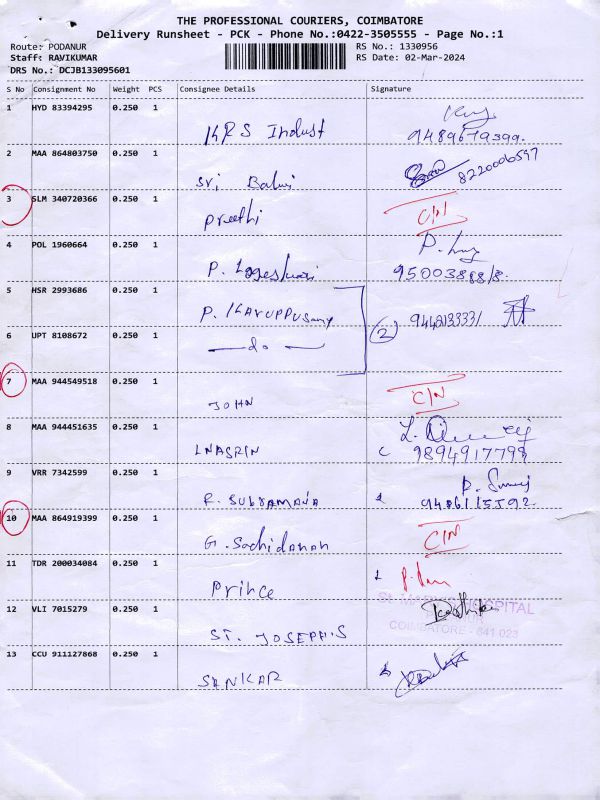 THE PROFESSIONAL COURIERS, COIMBATORE
Delivery Runsheet - PCK - Phone No.:0422-3505555 - Page No.:1
Route: PODANUR
RS No.: 1330956
Staff: RAVIKUMAR
RS Date: 02-Mar-2024
DRS No.: DCJB133095601
S No Consignment No Weight PCS Consignee Details Signature
1 HYD 83394295 0.250 1 KRS Indust
9489679399.
2 MAA 864803750 0.250 1 Sri Balaji 8220006597
3 SLM 340720366 0.250 1 Preethi C/N
4 POL 1960664 0.250 1 P. Logeshwari
5 HSR 2993686 0.250 1 P. KARUPPUSamy
2
6 UPT 8108672 0.250 1 — do —
7 MAA 944549518 0.250 1 JOHN C/N
8 MAA 944451635 0.250 1 LNASRIN
9894917799
9 VRR 7342599 0.250 1 R. SUBRAMANIA
9486115592.
10 MAA 864919399 0.250 1 G. Sachidanan C/N
11 TDR 200034084 0.250 1 Prince
ST. MARY'S HOSPITAL
12 VLI 7015279 0.250 1 ST. JOSEPH'S
COIMBATORE - 641 023
13 CCU 911127868 0.250 1 SANKAR